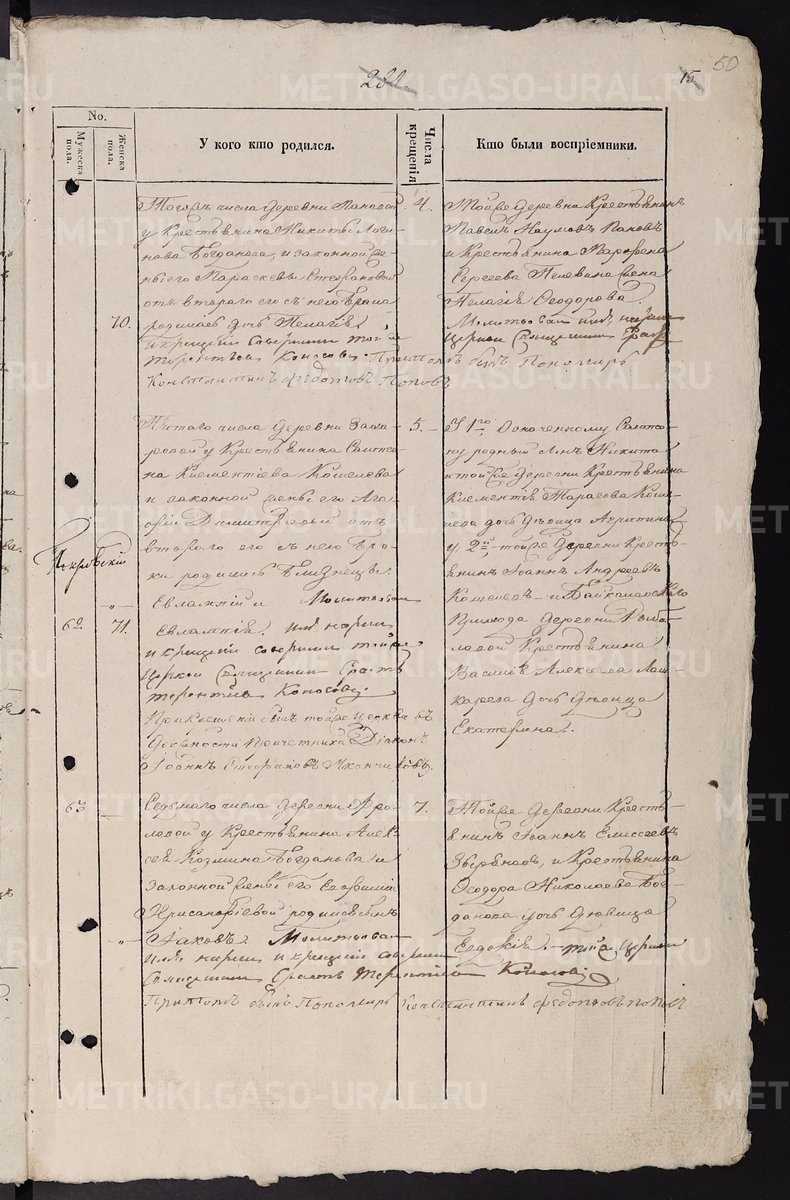 50
15
No.
Мужеска пола.
Женска пола.
У кого кто родился.
Числа крещенія
Кто были воспріемники.
70.
Тогожъ числа деревни Пановой
у Крестьянина Никиты Логи-
нова Богданова, и законной же-
ны его Параскевы Стефановой
отъ втораго его съ нею брака
родилась дочь Пелагія
и крещеніе совершилъ тойже
Терентьевъ Коносовъ. Притомъ былъ Пономарь
Константинъ Федотовъ Поповъ
4.
Тойже деревни Крестьянинъ
Павелъ Наумовъ Пановъ
и Крестьянина Парфена
Сергеева Пелевина жена
Пелагія Феодорова.
Молитвовалъ имя нарекъ
церкви Священникъ
Покровскій
62
71.
Пятаго числа деревни
у Крестьянина Самсо-
на Климентіева Кошелева
и законной жены его Ага-
фіи Димитріевой отъ
втораго его съ нею бра-
ка родились близнецы:
Евлампій и Молитвовалъ
Евлампія. имя нарекъ
и крещеніе совершилъ тойже
церкви Священникъ
Терентіевъ Коносовъ.
При крещеніи былъ тойже церкви въ
должности причетника Діаконъ
Іоаннъ Стефановъ
5.
У 1го означенному Самсо-
ну родный сынъ Никита
и тойже деревни Крестьянина
Климентія Тарасова Коше-
лева дочь девица
у 2й тойже деревни Кресть-
янинъ Іоаннъ Андреевъ
Кошелевъ и Байкаловскаго
Прихода деревни
Крестьянина
Василія Алексеева
дочь девица
Екатерина.
63
Седьмаго числа деревни
у Крестьянина Алек-
сея Козмина Богданова и
законной жены его Евфиміи
Хрисанфіевой родился сынъ
Іаковъ. Молитвовалъ
имя нарекъ и крещеніе совершилъ
Священникъ Терентіевъ Коносовъ
Притомъ былъ Пономарь Константинъ Федотовъ Поповъ
7.
Тойже деревни Кресть-
янинъ Іоаннъ Елисеевъ
и Крестьянина
Феодора Николаева Бог-
данова дочь девица
Евдокія. тойже церкви
METRIKI.GASO-URAL.RU